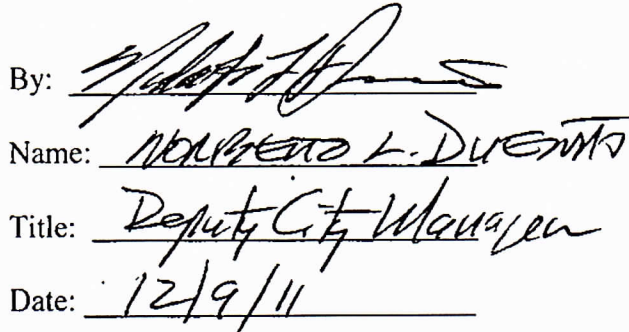 By:
Name: NORBERTO L. DUEÑAS
Title: Deputy City Manager
Date: 12/9/11